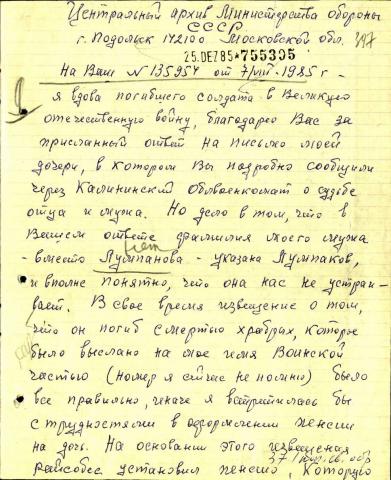 Центральный архив Министерства обороны
СССР
г. Подольск 142100 Московской обл.
25.DEZ85*755395
На Ваш № 135954 от 7/VIII-1985 г -
я вдова погибшего солдата в Великую
отечественную войну, благодарю Вас за
присланный ответ на письмо моей
дочери, в котором Вы подробно сообщили
через Калининский Облвоенкомат о судьбе
отца и мужа. Но дело в том, что в
Вашем ответе фамилия моего мужа
- вместо Лумпанова - указана Лумпаков,
и вполне понятно, что она нас не устраи-
вает. В свое время извещение о том,
что он погиб смертью храбрых, которое
было выслано на мое имя Воинской
частью (номер я сейчас не помню) было
все правильно, иначе я встретилась бы
с трудностями в оформлении пенсии
на дочь. На основании этого извещения
райсобес установил пенсию, которую